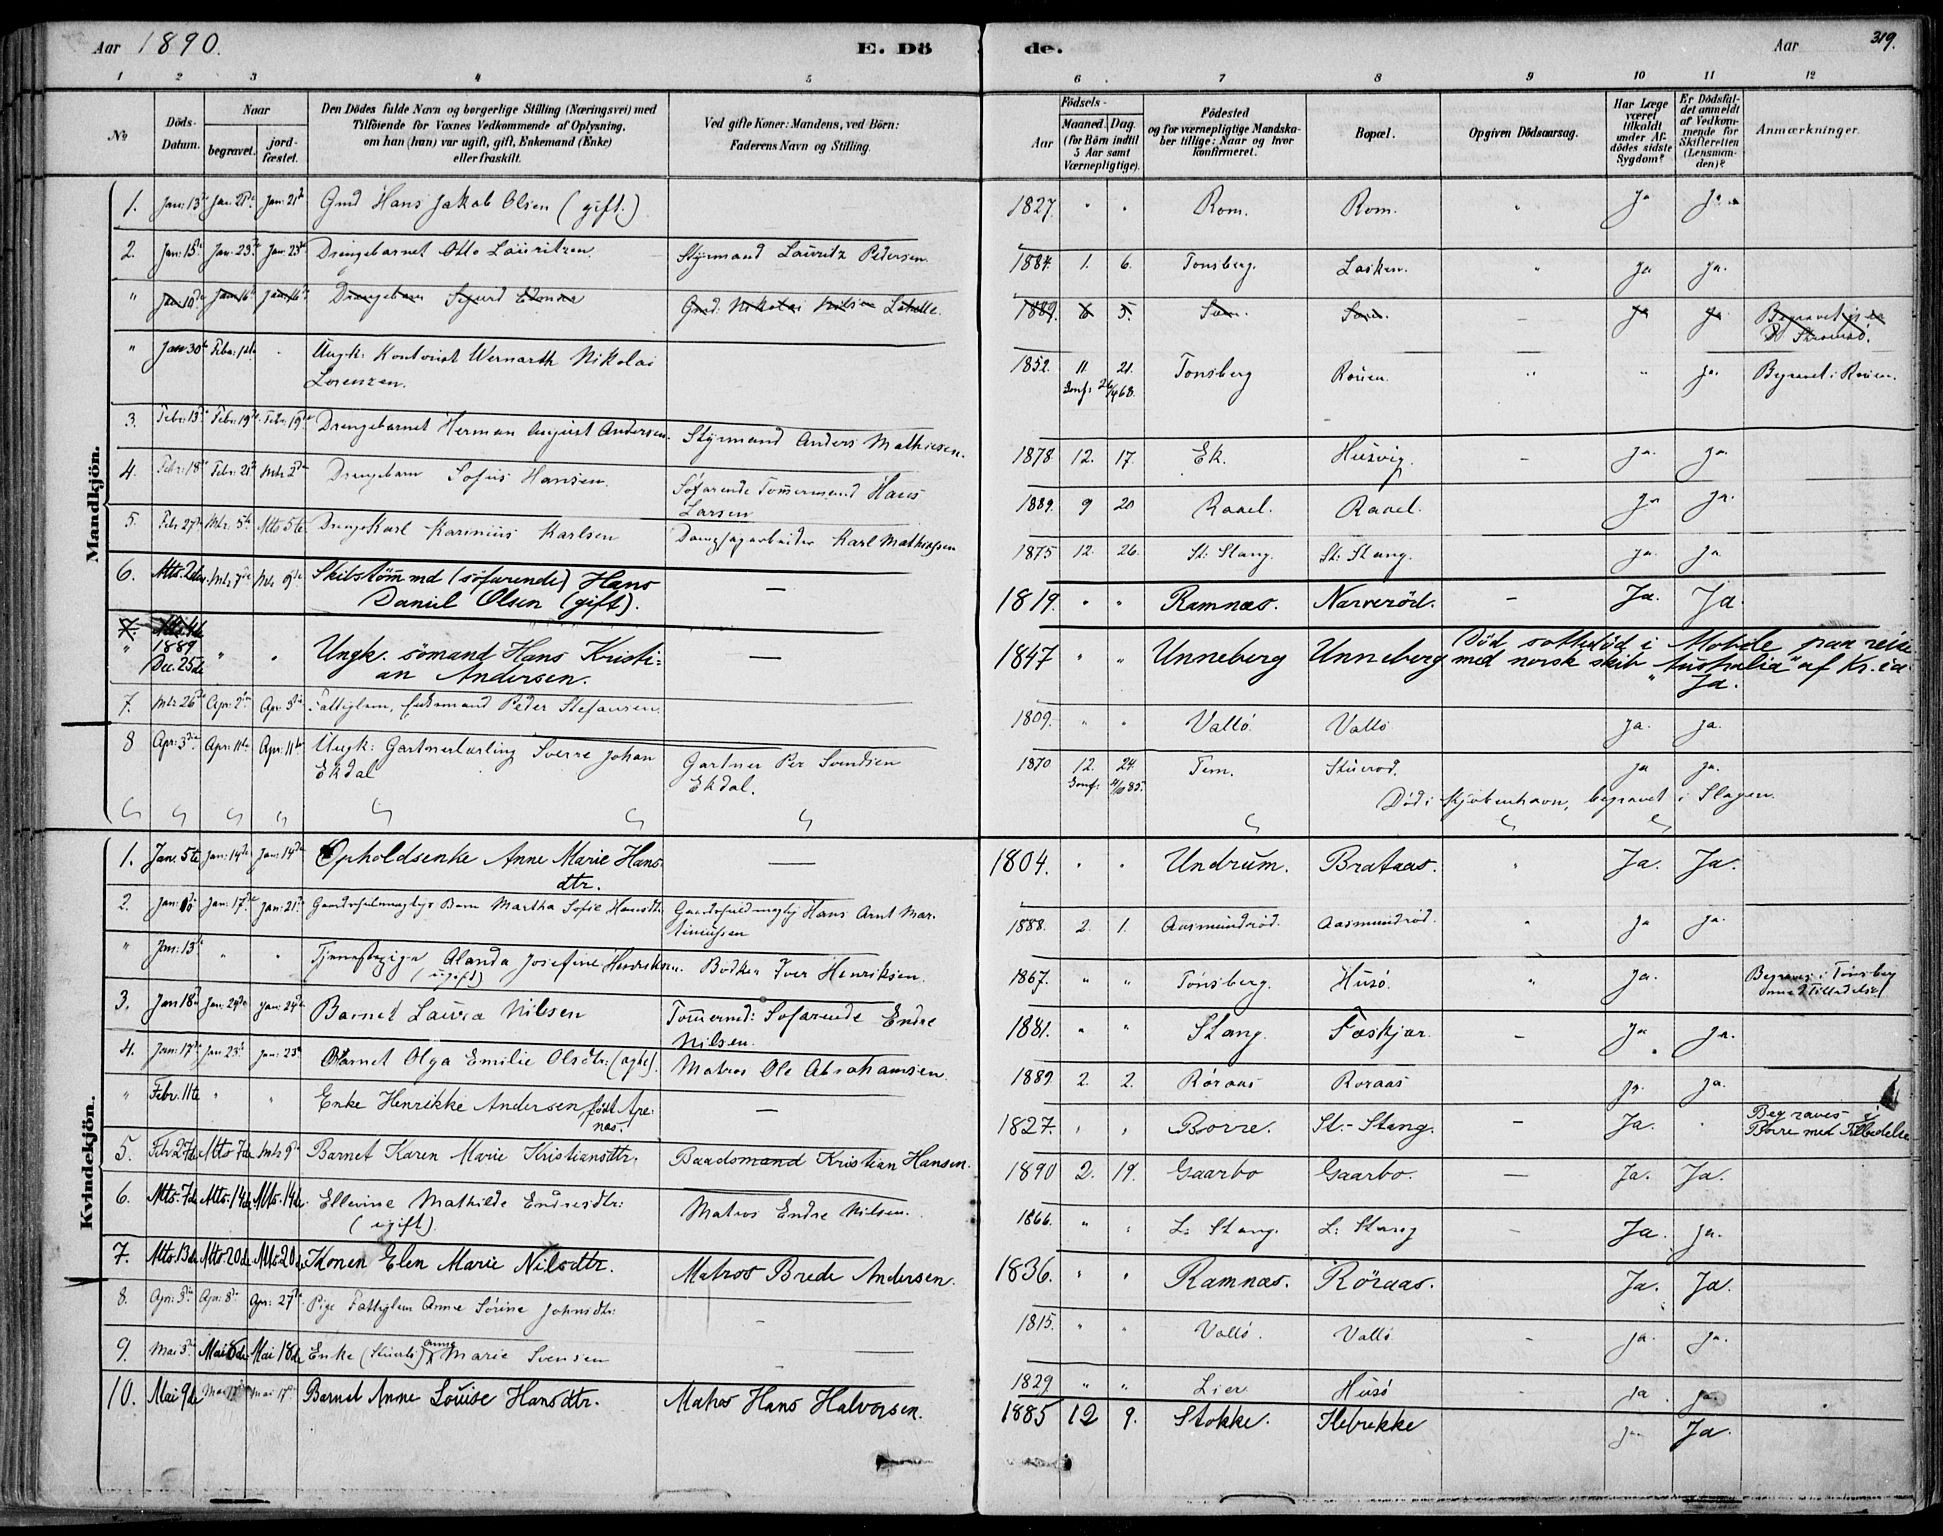 Aar 1890.
E. Dö
de.
Aar
319.
1 2 3 4 5 6 7 8 9 10 11 12
No
Döds-Datum.
Naar
begravet.
jord-fæstet.
Den Dödes fulde Navn og borgerlige Stilling (Næringsvei) med
Tilföiende for Voxnes Vedkommende af Oplysning,
om han (hun) var ugift, gift, Enkemand (Enke)
eller fraskilt.
Ved gifte Koner: Mandens, ved Börn:
Faderens Navn og Stilling.
Födsels-
Aar
Maaned. Dag.
(for Börn indtil
5 Aar samt
Værnepligtige).
Födested
og for værnepligtige Mandska-
ber tillige: Naar og hvor
konfirmeret.
Bopæl.
Opgiven Dödsaarsag.
Har Læge
været
tilkaldt
under Af-
dödes sidste
Sygdom?
Er Dödsfal-
det anmeldt
af Vedkom-
mende for
Skifteretten
(Lensman-
den)?
Anmærkninger.
Mandkjön.
1. Jan: 13de Jan: 21de Jan: 21de Gmd Hans Jakob Olsen (gift.) 1827. " " Rom. Rom. " Ja Ja
2. Jan: 15de Jan: 23de Jan: 23de Drengebarnet Otto Lauritzen. Styrmand Lauritz Pedersen. 1884. 1. 6. Tonsberg. Lasken. " Ja Ja.
" Jan: 10de Jan: 16de Jan: 16de Drengebarn Sigurd Gmd: Nikolai Nilsen 1889. 6 5. Sem. Sem. Ja Ja Begravet
" Jan: 30te Febr: 1ste " Ungk: Kontorist Wernarth Nikolai
Lorenzen. 1852. 11 21. Tonsberg Rouen. " " Ja. Begravet i Rouen.
Conf: 68.
3. Febr: 13de Febr: 19de Febr: 19de Drengebarnet Herman August Andersen. Styrmand Anders Mathiesen. 1878 12. 17. Ek. Husvig. – Ja. Ja
4. Febr: 18de Febr: 21de Mts 2den Drengebarn Sofus Hansen. Söfarende Tömmermand Hans
Larsen 1889. 9 20 Raael. Raael. Ja Ja.
5. Febr 27de Mts. 5te Mts 5te Dreng Karl Karinius Karlsen Dampsagarbeider Karl Mathiassen 1875 12. 26. St: Stang. St: Stang. Ja Ja
6. Mts. 2den Mts. 7de Mts 9de Skibstömmmd (söfarende) Hans
Daniel Olsen (gift). – 1819. " " Ramnæs. Narveröd. – Ja. Ja.
" 1889
Dec. 25de " " Ungk. sömand Hans Kristi=
an Andersen. – 1847 " " Unneberg Unneberg Död sottedöd i Mobile paa reise
med norsk skib "Australia" af Kr.ia.
Ja.
7. Mts 26de Apr: 2den Apr 3die Fattiglem, Enkemand Peder Stefansen. 1809. " " Vallö Vallö Ja. Ja.
8 Apr: 3die Apr: 11te Apr: 11te Ungk: Gartnerlærling Sverre Johan
Ekdal Gartner Per Svendsen
Ekdal. 1870 12. 24. Tem. Stuerod. Ja Ja.
Conf: 85.
Död i Kjöbenhavn, begravet i Slagen.
Kvindekjön.
1. Jan. 5te Jan: 14de Jan: 14de Opholdsenke Anne Marie Hans
dtr. – 1804. " " Undrum. Brataas. " Ja. Ja.
2. Jan: Jan: 17de Jan: 21de Gaardsfuldmægtigs Barn Martha Sofie Hansdtr. Gaardsfuldmægtig Hans Arnt Mar-
tiniussen 1888. 2. 1. Aasmundröd. Aasmundröd. " Ja Ja.
" Jan: 13de " " Tjenestepige Alanda Josefine Henriksen. Bödker Iver Henriksen.
(ugift) 1867. " " Tönsberg. Husö. " Ja. Begraves i Tönsberg
med Tilladelse
3. Jan 18de Jan: 24de Jan: 24de Barnet Laura Nilsen Tömmermd: Söfarende Endre
Nilsen. 1881. " " Stang. Fæskjær. – Ja Ja.
4. Jan: 17de Jan 23de Jan: 23de Barnet Olga Emilie Olsdtr: (ægte). Matros Ole Abrahamsen. 1889. 2. 2. Röraas Roraas Ja. Ja.
" Febr. 11te " " Enke Henrikke Andersen, födt Are-
næs. – 1827. " " Borre. St.-Stang. – Ja. Begraves i
Borre med Tilladelse
5. Feb 27de Mts 7de Mts 9de Barnet Karen Marie Kristiansdtr. Baadsmand Kristian Hansen. 1890 2. 19. Gaarbo Gaarbo. – Ja. Ja.
6. Mts. 7de Mts. 14de Mts. 14de Ellevine Mathilde Endresdtr:
(ugift). Matros Endre Nilsen. 1866. " " L. Stang. L: Stang – Ja. Ja.
7. Mts. 13de Mts 20de Mts 20de Konen Elen Marie Nilsdtr. Matros Brede Andersen. 1836. " " Ramnæs. Röraas. Ja. Ja.
8. Apr: 3die Apr: 8de Apr: 27de Pige Fattiglem Anne Sörine Johnsdtr: – 1815. " " Vallö. Vallö. – Ja. Ja.
9. Mai 3die Mai Mai 18de Enke Anne Marie Svensen – 1829 " " Lier Husö – Ja. Ja.
10. Mai 9de Mai 17de Mai 17de Barnet Anne Louise Hansdtr. Matros Hans Halvorsen. 1885 12 9. Stokke. Ilebrekke Ja Ja.